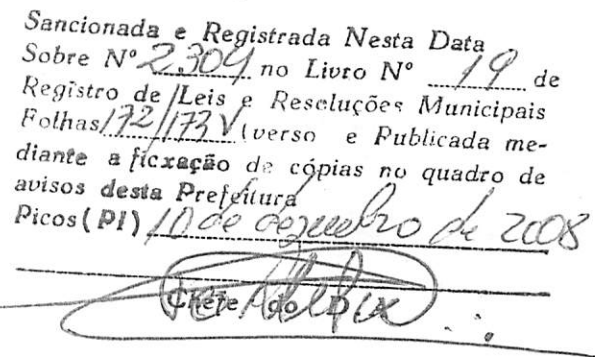 Sancionada e Registrada Nesta Data
Sobre Nº 2.304 no Livro Nº 19 de
Registro de Leis e Resoluções Municipais
Folhas 172/173 V (verso e Publicada me-
diante a ficxação de cópias no quadro de
avisos desta Prefeitura
Picos (PI) 10 de dezembro de 2008
Chefe do